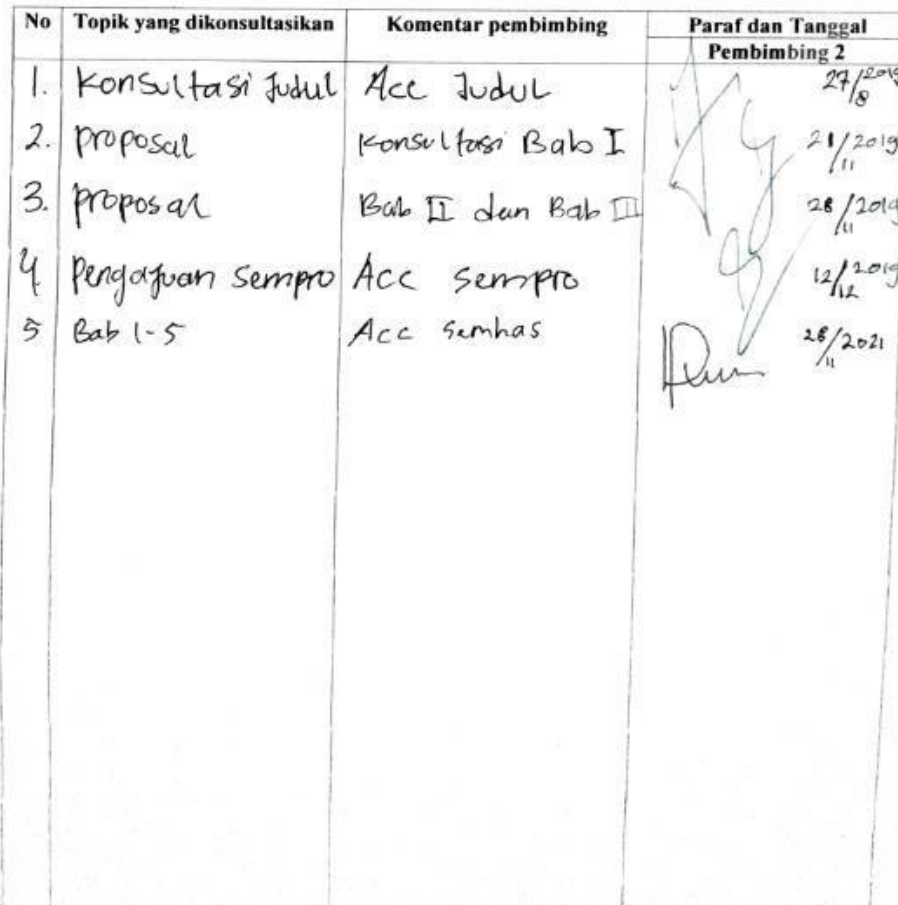 No Topik yang dikonsultasikan Komentar pembimbing Paraf dan Tanggal
Pembimbing 2
1. Konsultasi Judul Acc Judul 27/8 2019
2. proposal Konsultasi Bab I 21/11 2019
3. proposal Bab II dan Bab III 28/11 2019
4 Pengajuan Sempro Acc sempro 12/12 2019
5 Bab 1-5 Acc semhas 28/11 2021